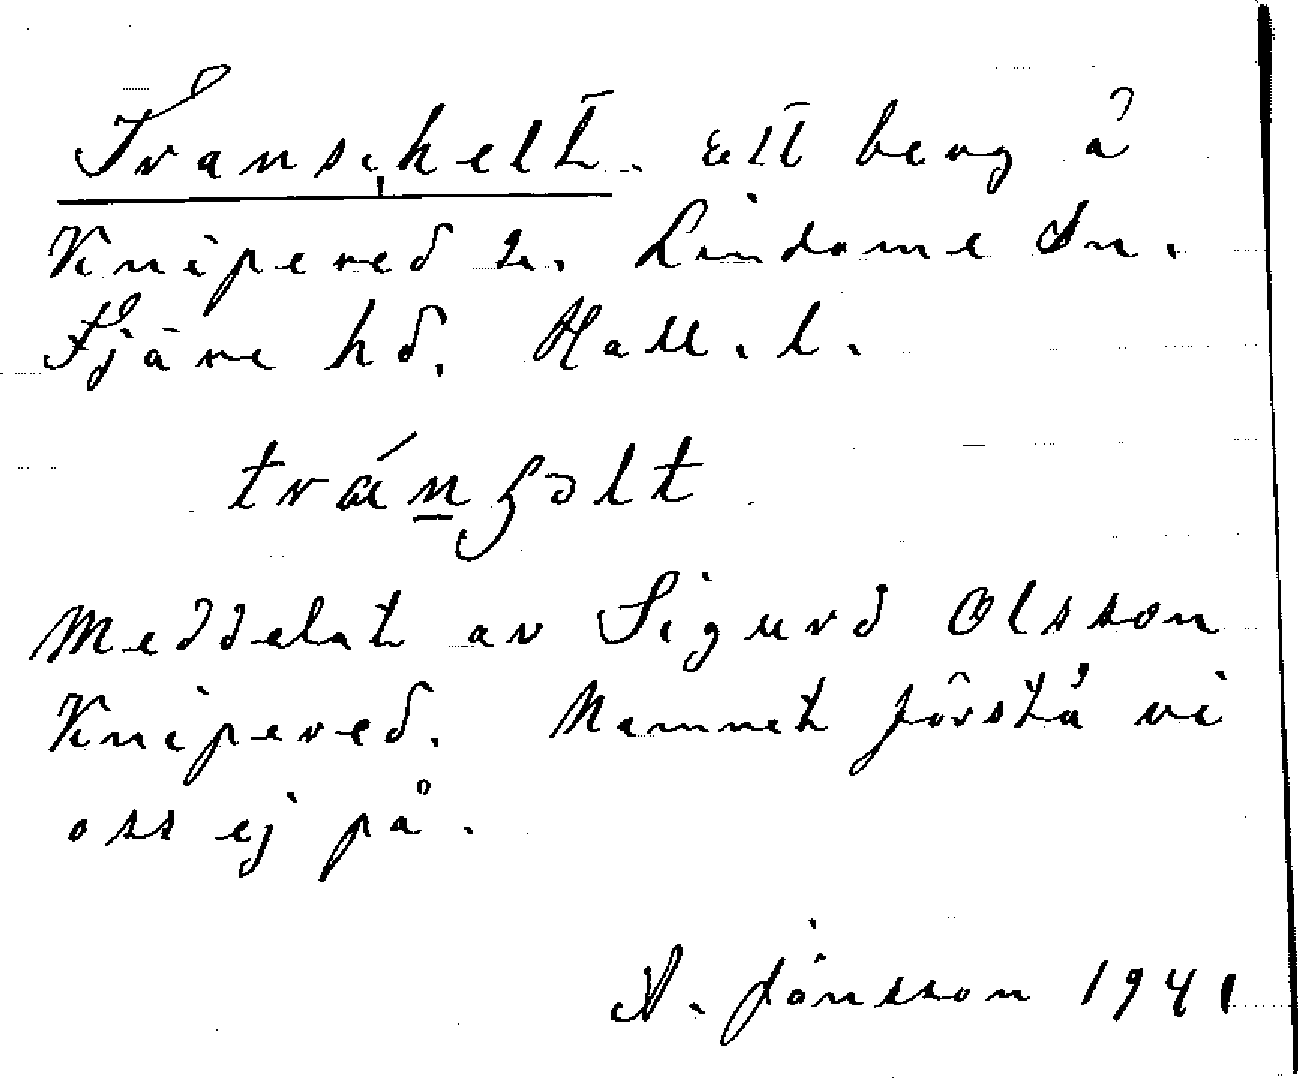 Transchelt. Ett berg å
Knipered i. Lindome Sn.
Fjäre hd. Hall. l.
tránʒəlt
Meddelat av Sigurd Olsson
Knipered. Namnet förstå vi
oss ej på.
A. Jönsson 1941